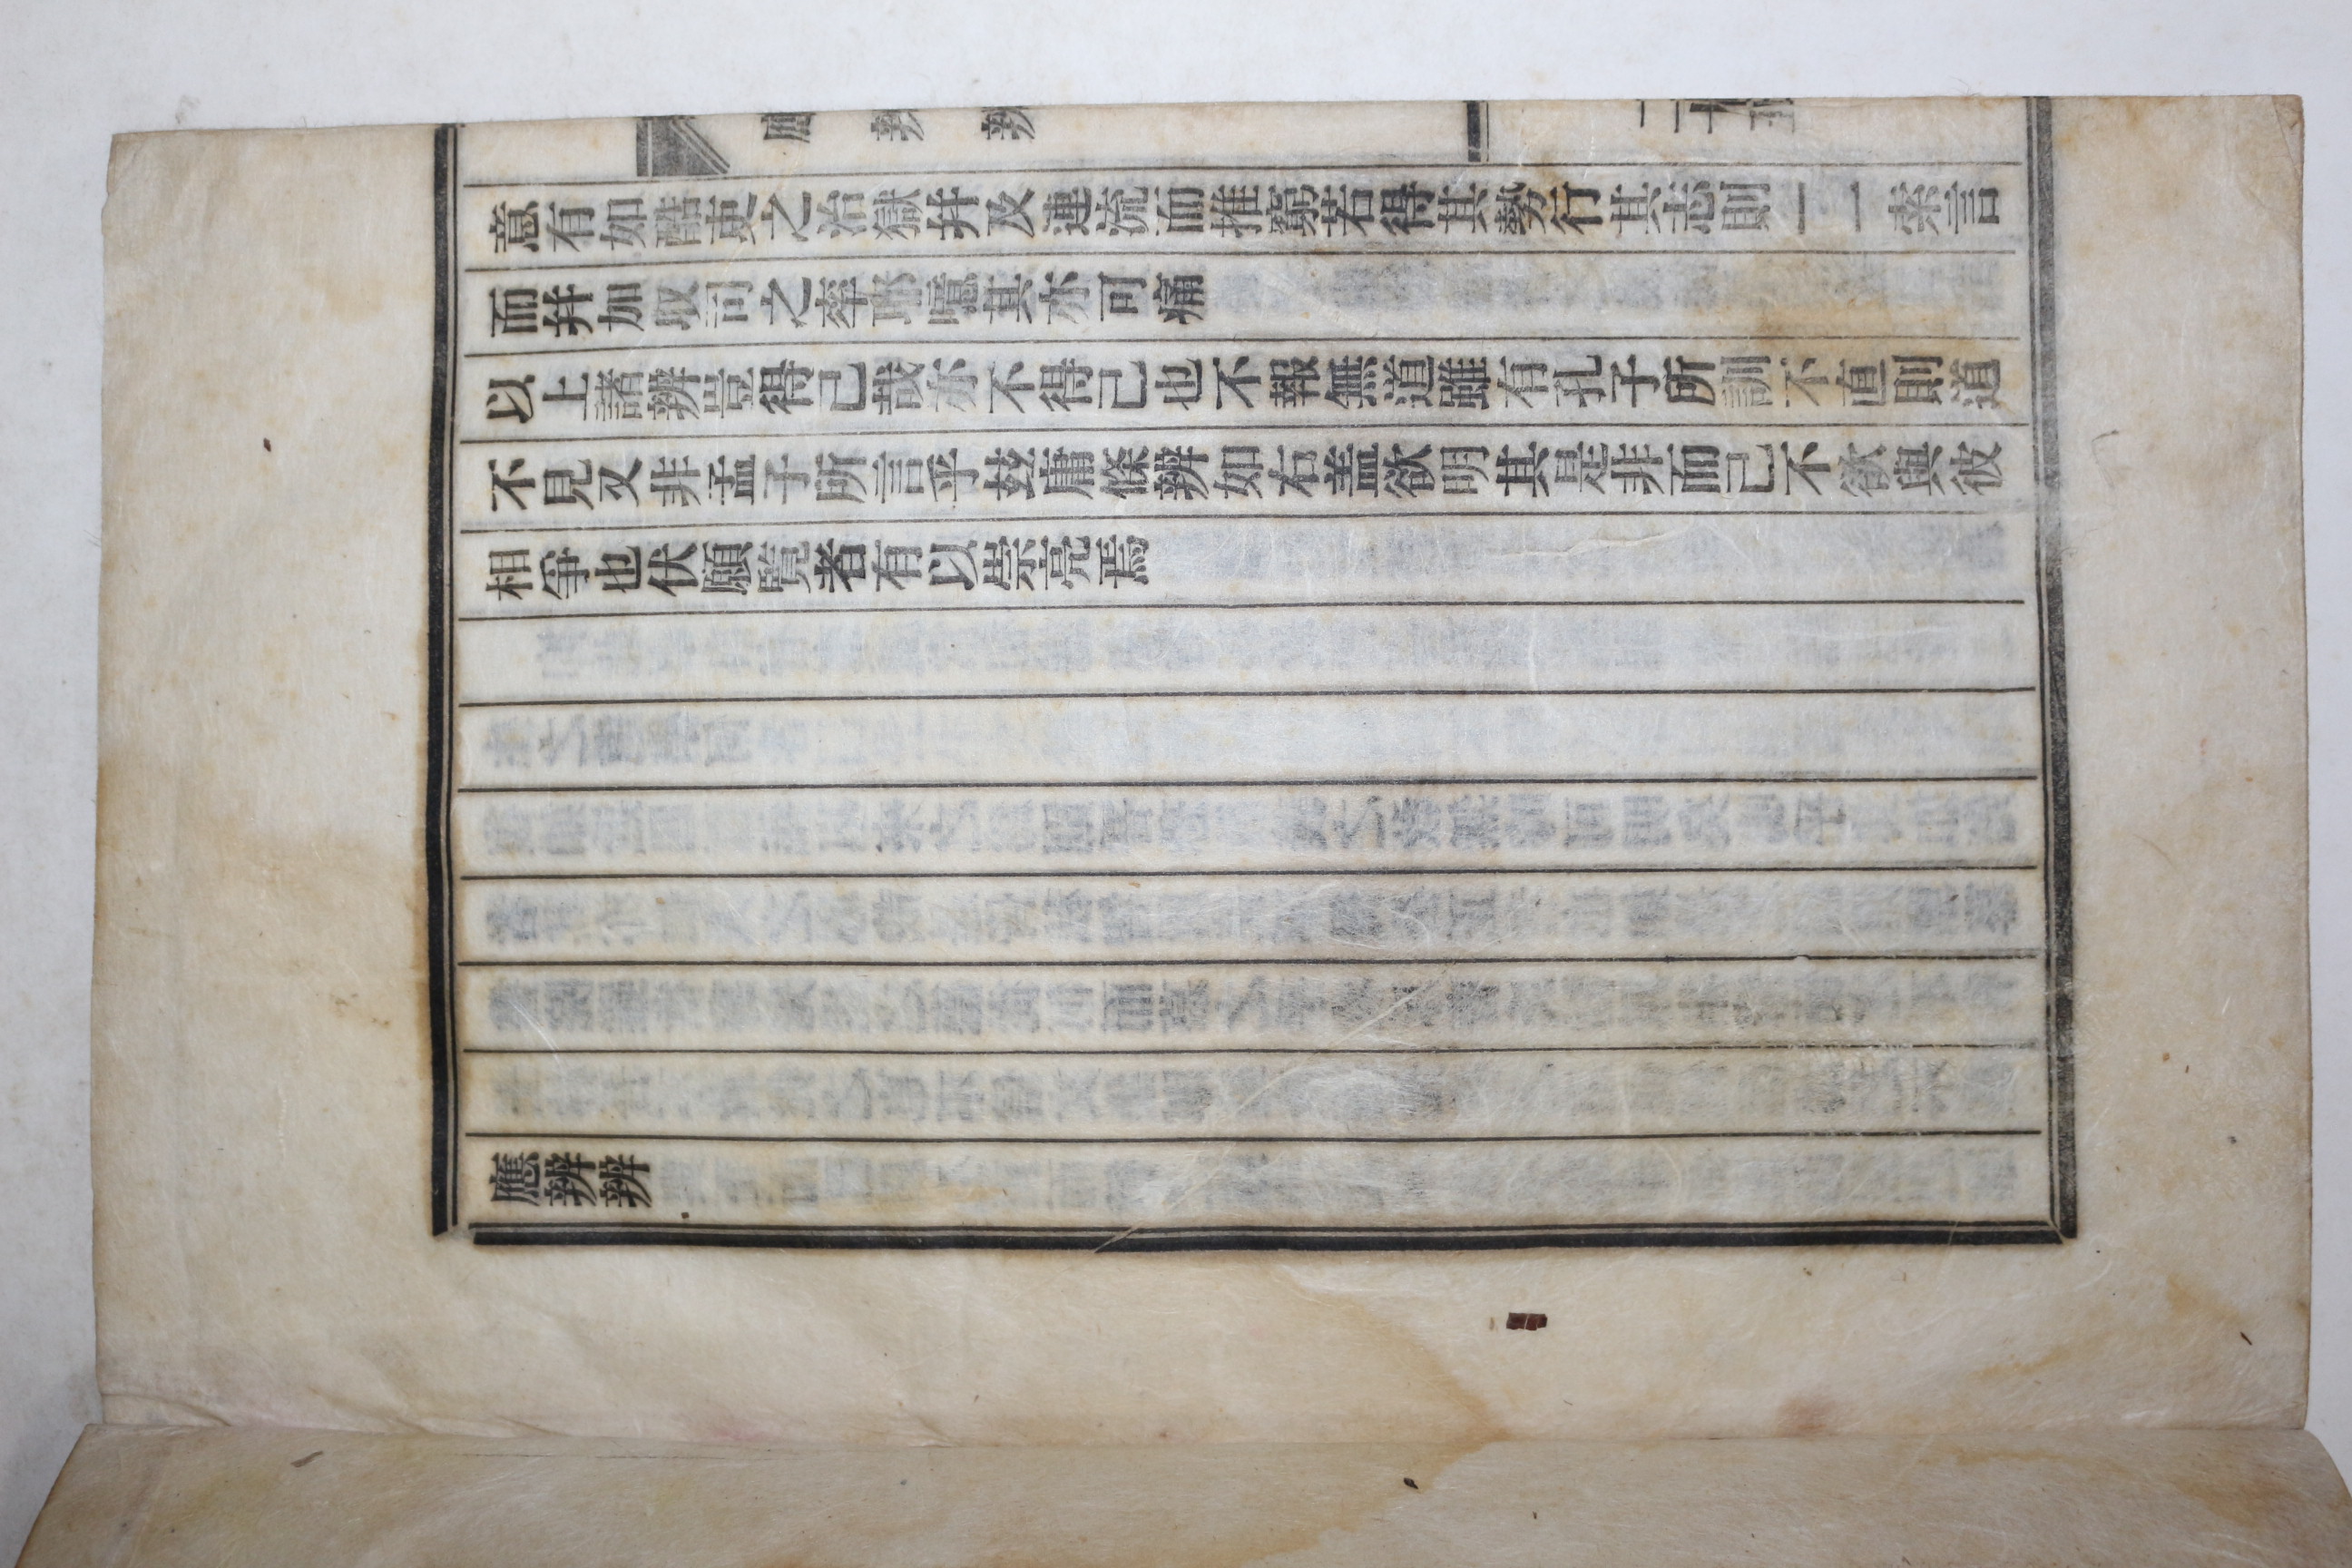 應辨辨
意有如酷吏之治獄并及連流而推窮若得其勢行其志則一一案言
而并加收司之率噫其亦可痛
以上諸辨豈得已哉亦不得已也不報無道雖有孔子所訓不直則道
不見又非孟子所言乎玆庸條辨如右盖欲明其是非而已不欲與彼
相爭也伏願覽者有以崇亮焉
應辨辨